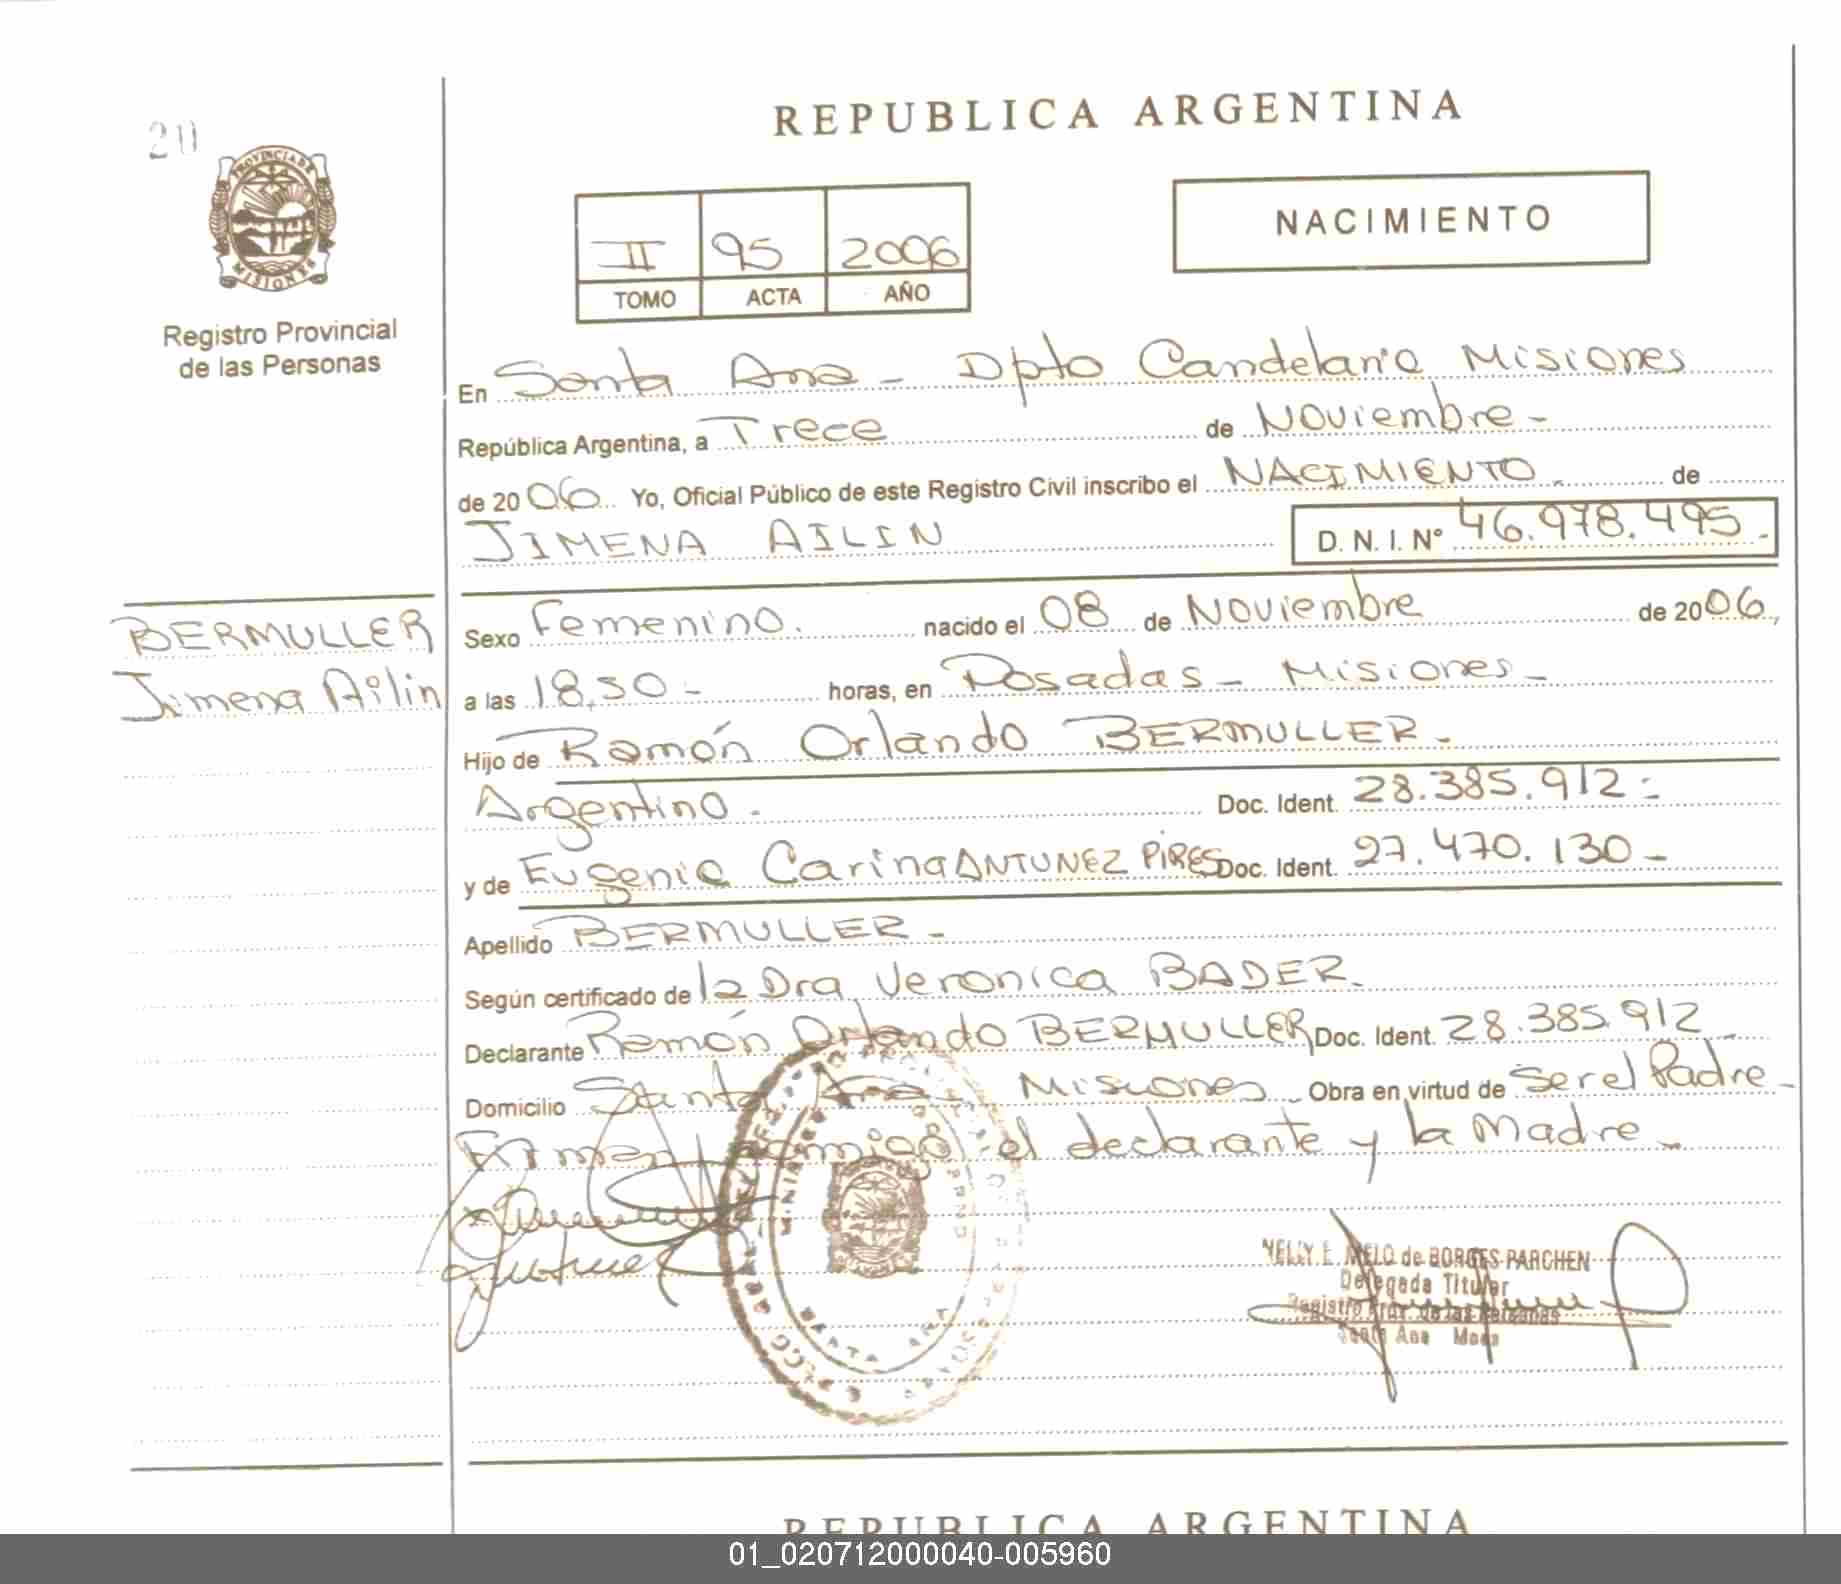 REPUBLICA ARGENTINA
20
PROVINCIA DE
MISIONES
Registro Provincial
de las Personas
II 95 2006
TOMO ACTA AÑO
NACIMIENTO
En Santa Ana - Dpto Candelaria Misiones
República Argentina, a Trece de Noviembre -
de 2006 Yo, Oficial Público de este Registro Civil inscribo el NACIMIENTO de
JIMENA AILIN D. N. I. Nº 46.978.495.-
BERMULLER
Jimena Ailin
Sexo Femenino. nacido el 08 de Noviembre de 2006,
a las 18,30 - horas, en Posadas - Misiones -
Hijo de Ramón Orlando BERMULLER -
Argentino. Doc. Ident. 28.385.912 -
y de Eugenia Carina ANTUNEZ PIRES Doc. Ident. 27.470.130 -
Apellido BERMULLER -
Según certificado de la Dra Veronica BADER.
Declarante Ramón Orlando BERMULLER Doc. Ident. 28.385.912
Domicilio Santa Ana - Misiones Obra en virtud de Ser el Padre -
Firman conmigo el declarante y la Madre -
NELLY E. MELO de BORGES PARCHEN
Delegada Titular
Registro Prov. de las Personas
Santa Ana Mnes
REPUBLICA ARGENTINA
01_020712000040-005960